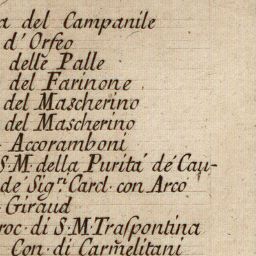 a del Campanile
d' Orfeo
delle Palle
del Farinone
del Mascherino
del Mascherino
Accoramboni
S. M. della Purità de' Cau-
de' Sig.ri Card. con Arco
Giraud
roc. di S. M. Traspontina
Con. di Carmelitani